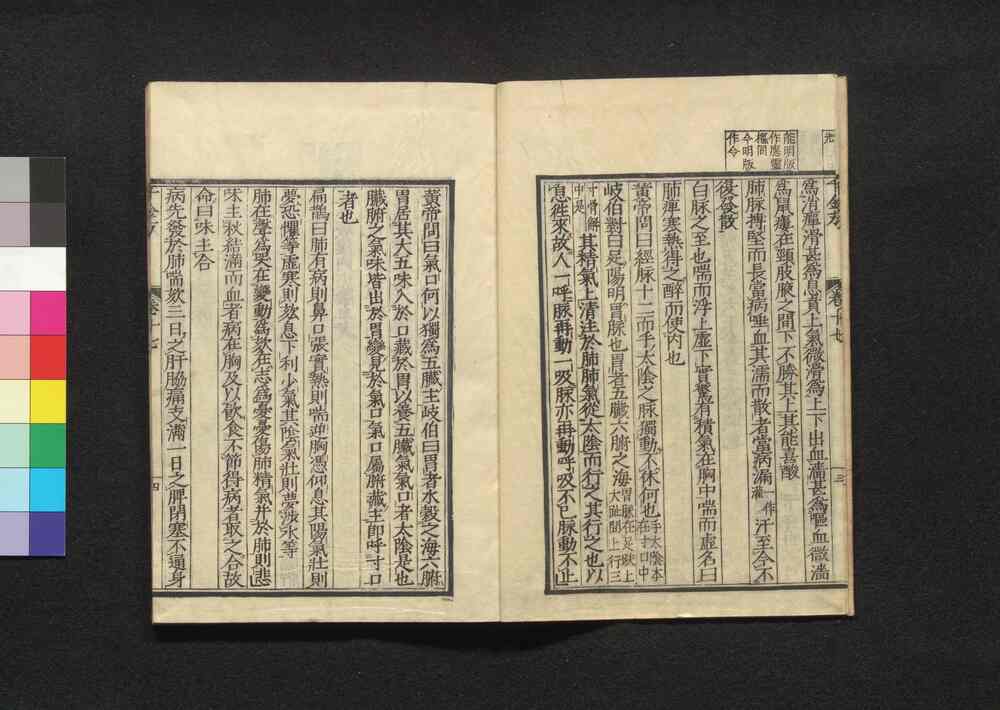 為消癉滑甚為息賁上氣微滑為上下出血濇甚為嘔血微濇
為鼠瘻在頸肢腋之間下不勝其上其能喜酸
肺脉搏堅而長當病唾血其濡而散者當病漏一作灌汗至今不
復發散
白脉之至也喘而浮上虛下實驚有積氣在胸中喘而虛名曰
肺痺寒熱得之醉而使內也
黃帝問曰經脉十二而手太陰之脉獨動不休何也手太陰本在寸口中
岐伯對曰足陽明胃脉也胃者五臟六腑之海胃脉在足趺上大趾間上行三
寸骨解中是其精氣上清注於肺肺氣從太陰而行之其行之也以
息往來故人一呼脉再動一吸脉亦再動呼吸不已脉動不止
能明版
作應靈
樞同
今明版
作令
千金方
卷十七
三
黃帝問曰氣口何以獨為五臟主岐伯曰胃者水穀之海六腑
胃居其大五味入於口藏於胃以養五臟氣氣口者太陰是也
臟腑之氣味皆出於胃變見於氣口氣口屬腑臟主即呼寸口
者也
扁鵲曰肺有病則鼻口張實熱則喘逆胸憑仰息其陽氣壯則
夢恐懼等虛寒則欬息下利少氣其陰氣壯則夢涉水等
肺在聲為哭在變動為欬在志為憂憂傷肺精氣并於肺則悲
味主秋結滿而血者病在胸及以飲食不節得病者取之合故
命曰味主合
病先發於肺喘欬三日之肝脇痛支滿一日之脾閉塞不通身
千金方
卷十七
四